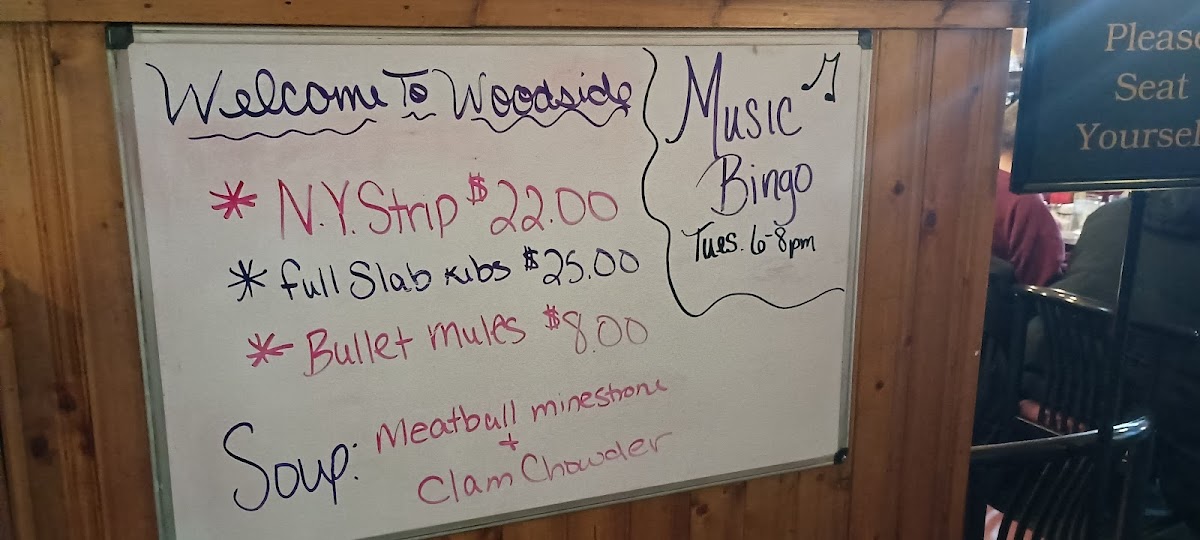 Welcome To Woodside
* N.Y. Strip $22.00
* full Slab ribs $25.00
* Bullet mules $8.00
Soup: Meatball minestrone
+
Clam Chowder
Music
Bingo
Tues. 6-8pm
Please
Seat
Yoursel